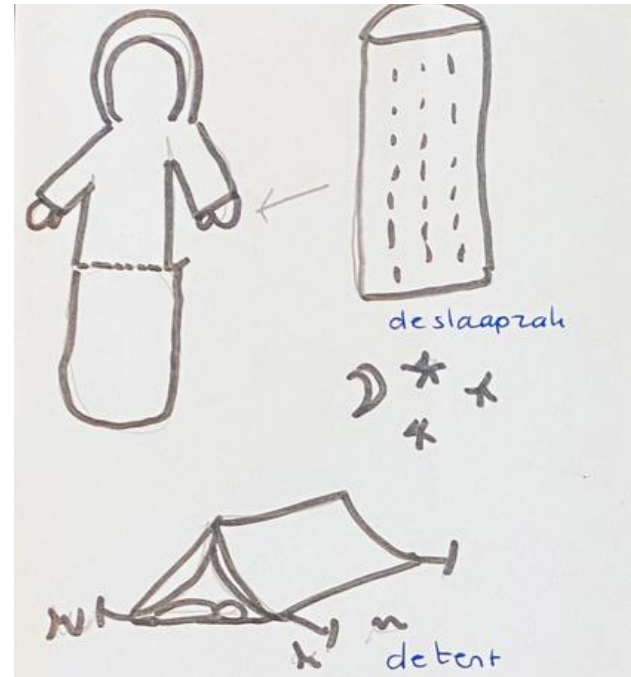 de slaapzak
de tent